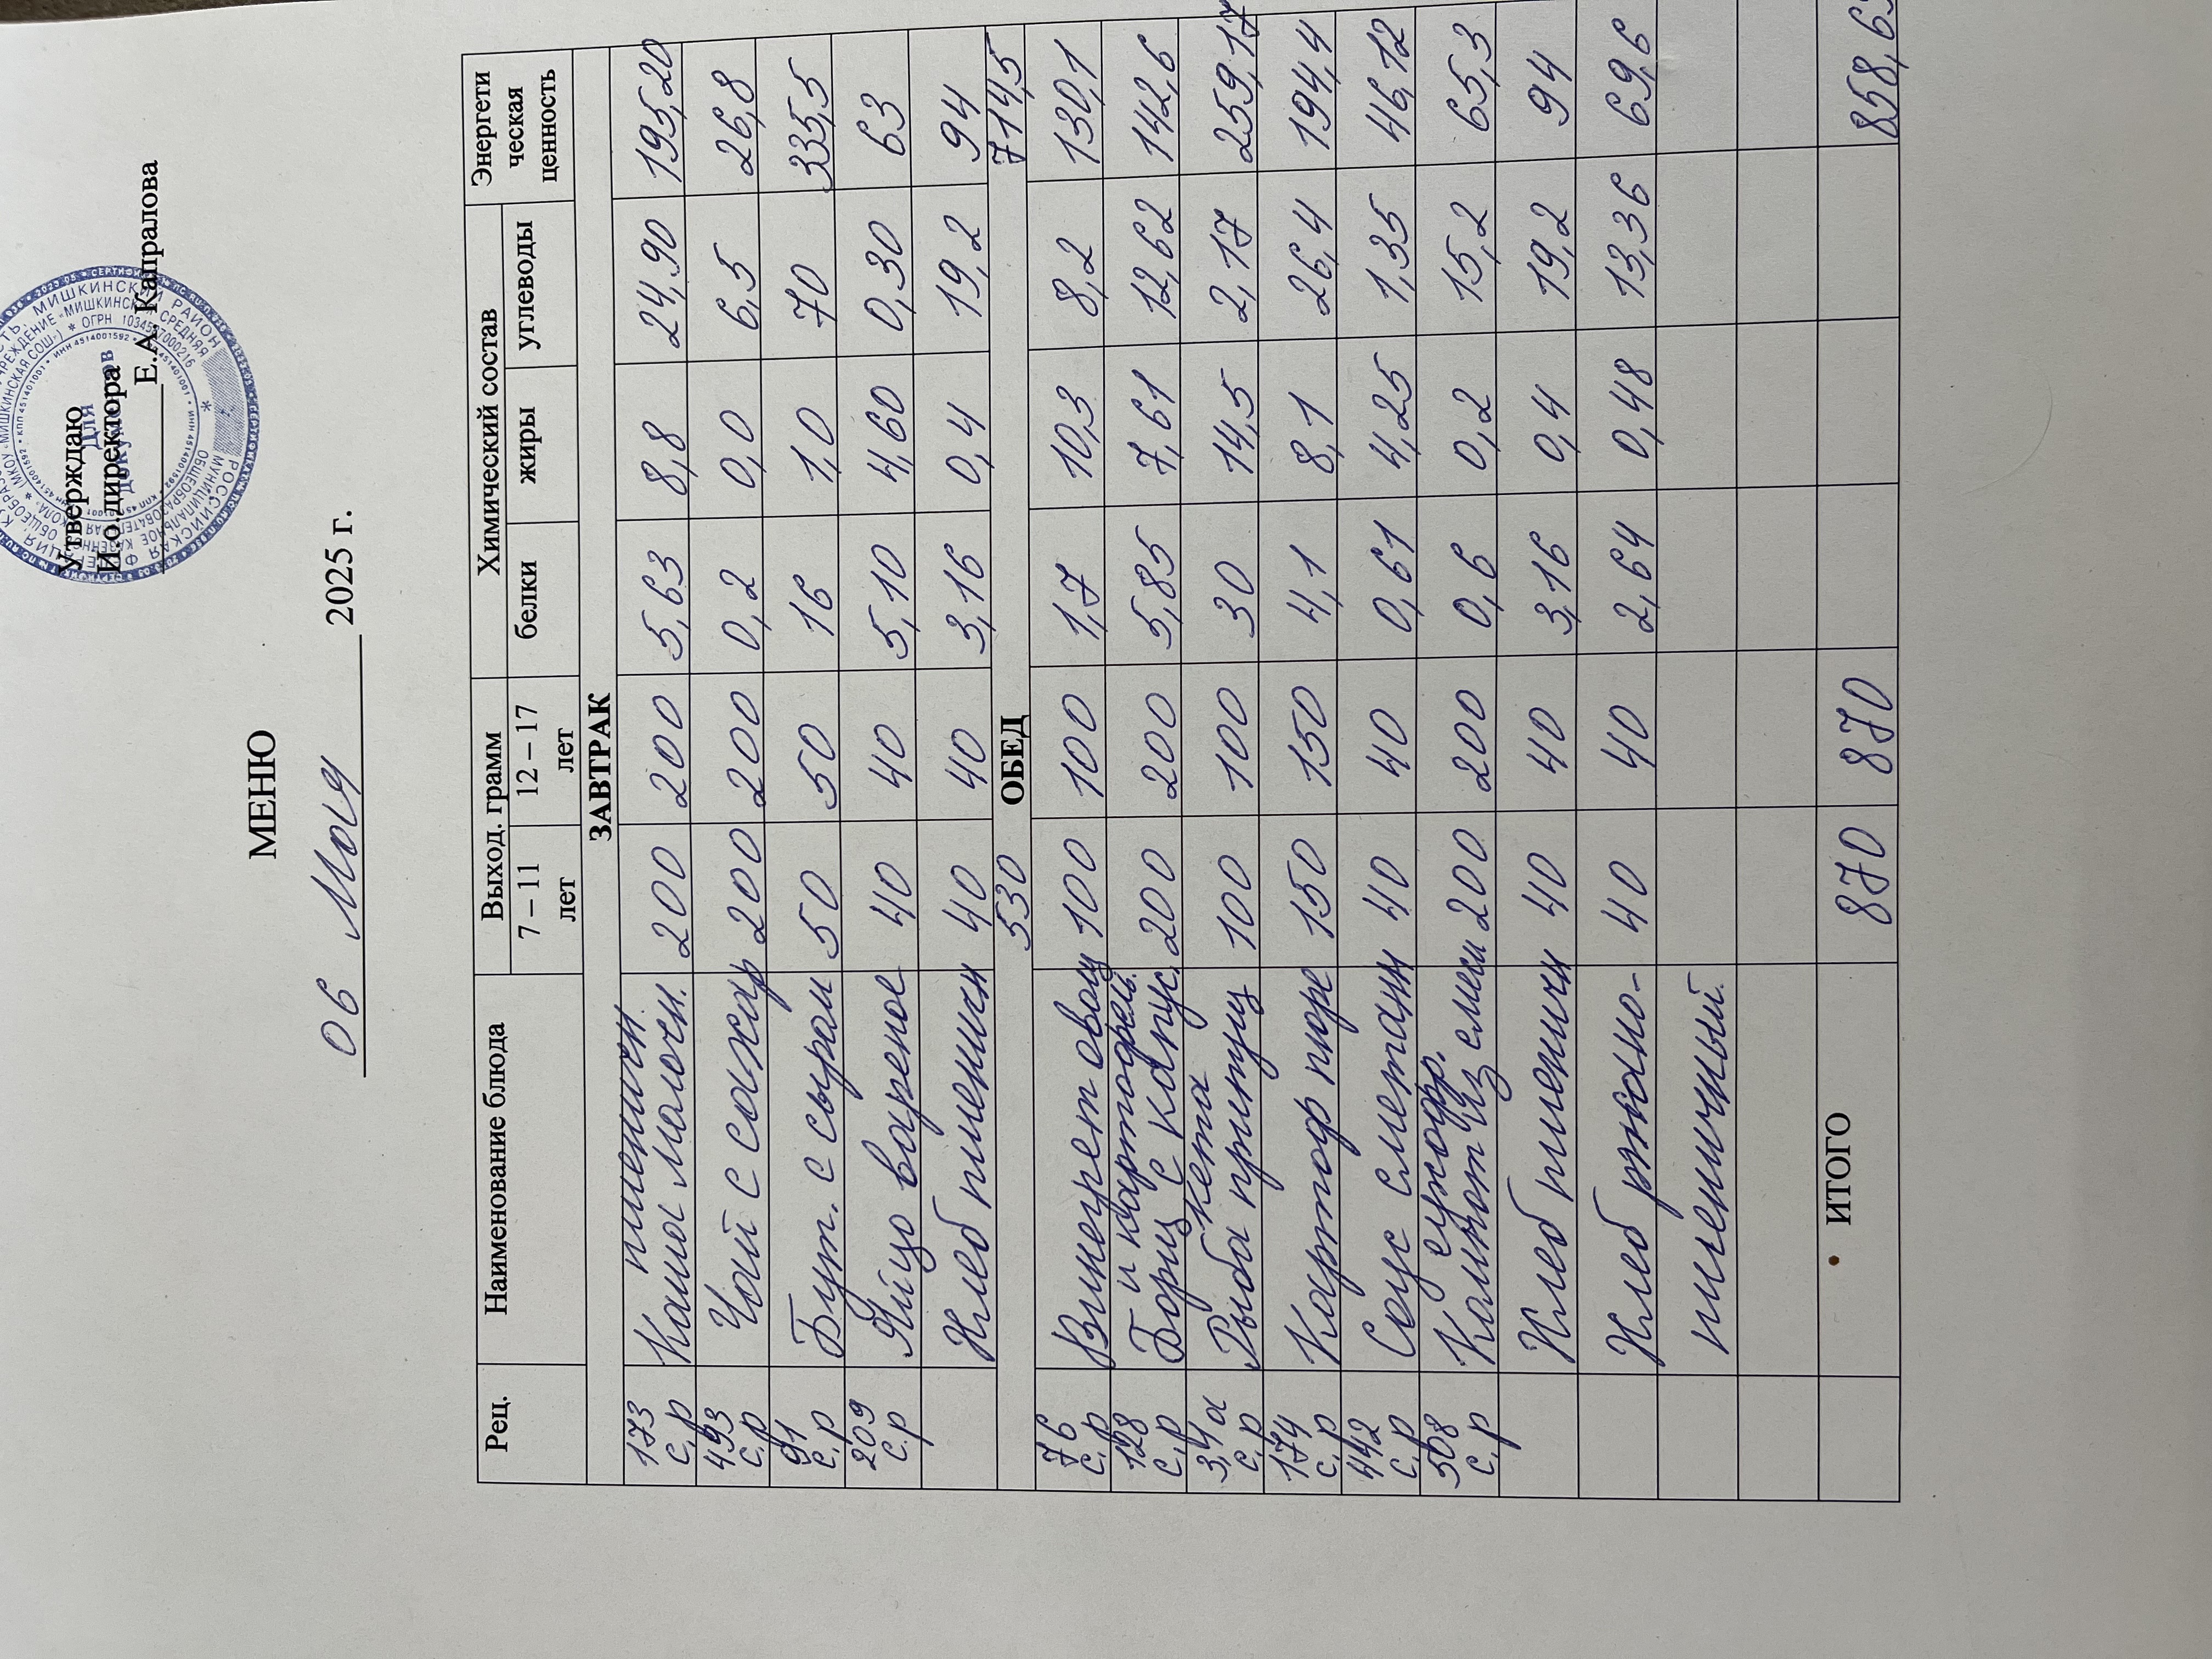 Утверждаю
И.о.директора
Е.А. Капралова
Для
документов
МЕНЮ
06 Мая 2025 г.
Рец. Наименование блюда Выход. грамм Химический состав Энергети ческая ценность
7 – 11 лет 12 – 17 лет белки жиры углеводы
ЗАВТРАК
173 с.р Каша молочн. пшеничн. 200 200 5,63 8,8 24,90 195,20
493 с.р Чай с сахар 200 200 0,2 0,0 6,5 26,8
91 с.р Бут. с сыром 50 50 16 1,0 70 335,5
209 с.р Яйцо вареное 40 40 5,10 4,60 0,30 63
Хлеб пшеничн 40 40 3,16 0,4 19,2 94
530 ОБЕД 714,5
76 с.р Винегрет овощ 100 100 1,7 10,3 8,2 130,1
128 с.р Борщ с капус. и картофель. 200 200 5,85 7,61 12,62 142,6
3,4а с.р Рыба припущ кета 100 100 30 14,5 2,17 259,17
174 с.р Картоф пюре 150 150 4,1 8,1 26,4 194,4
442 с.р Соус сметанн 40 40 0,61 4,25 1,35 46,12
508 с.р Компот из смеси сухофр. 200 200 0,6 0,2 15,2 65,3
Хлеб пшеничн 40 40 3,16 0,4 19,2 94
Хлеб ржано- 40 40 2,64 0,48 13,36 69,6
пшеничный.
ИТОГО 870 870